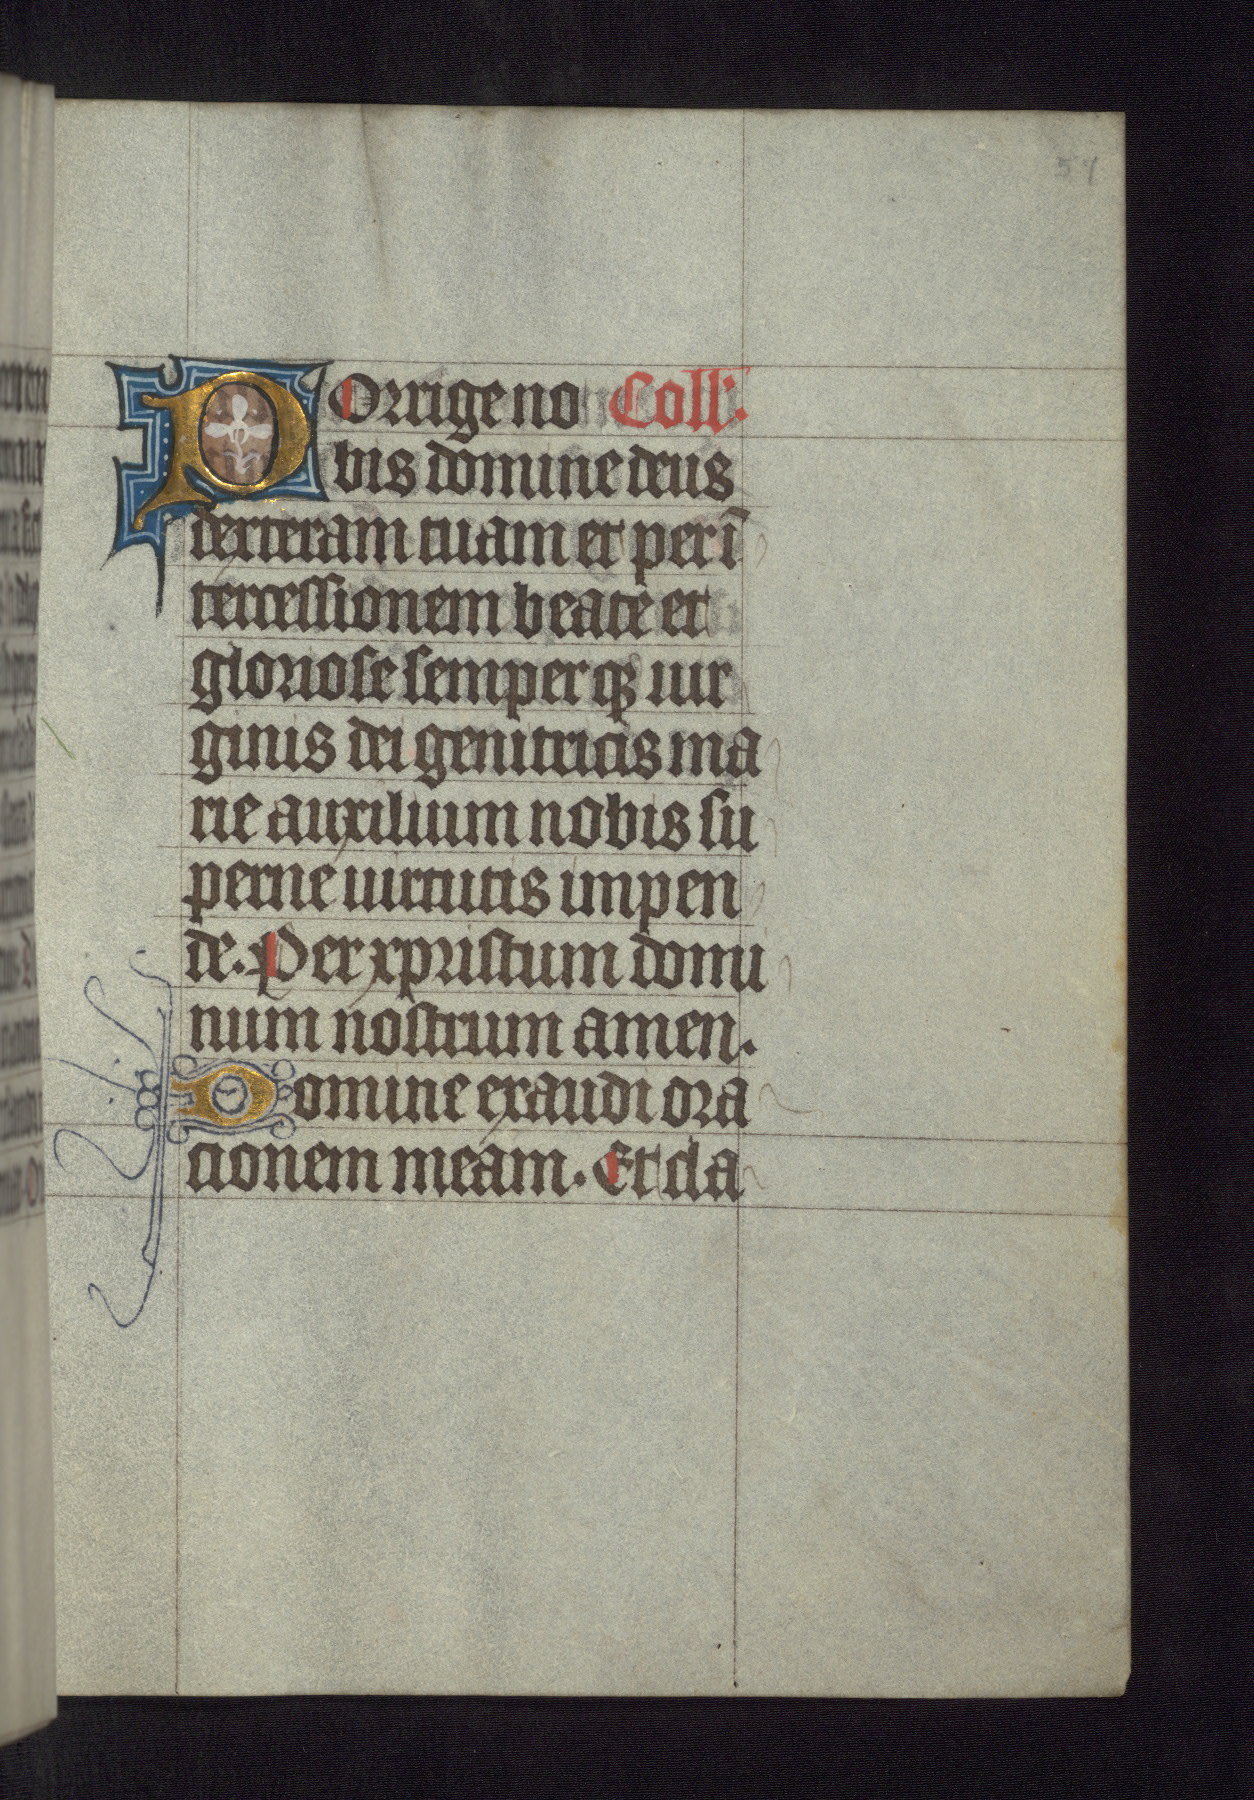 57
Porrige no Coll'.
bis domine deus
dexteram tuam et per ī
tercessionem beate et
gloriose semperqꝫ uir
ginis dei genitricis ma
rie auxilium nobis su
perne uirtutis impen
de. Per xpristum domi
num nostrum amen.
Domine exaudi ora
cionem meam. Et cla